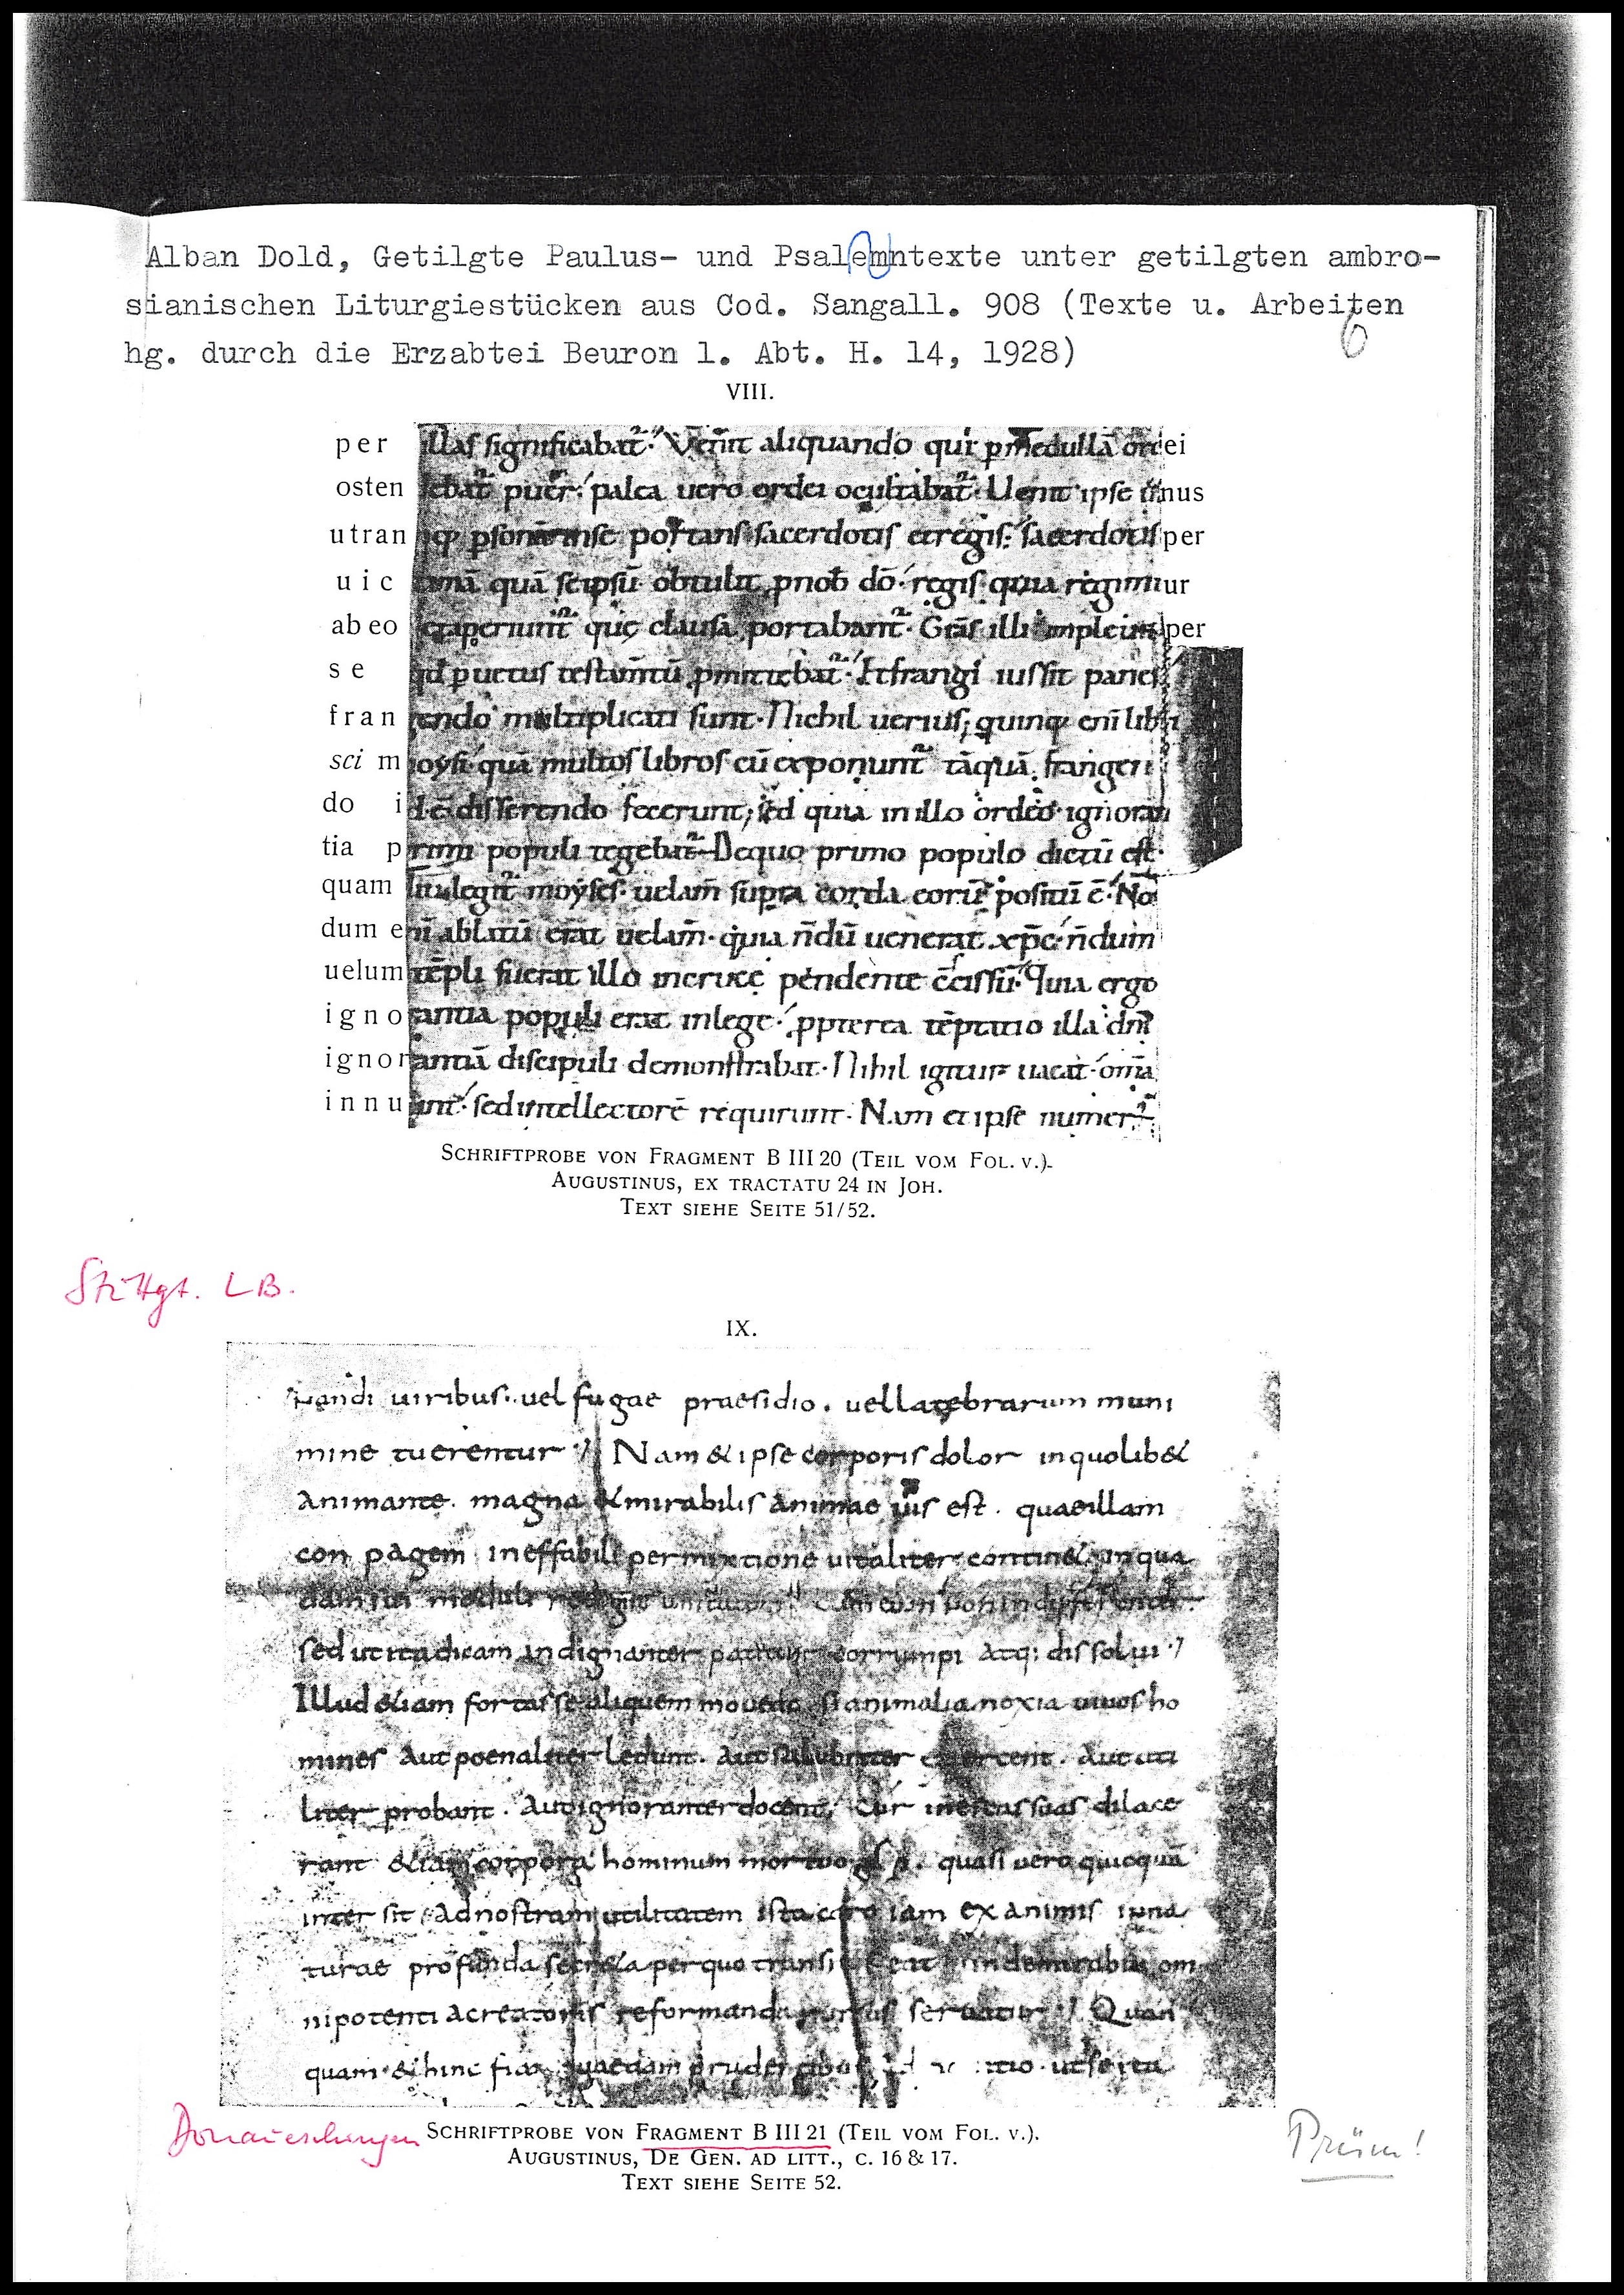 Alban Dold, Getilgte Paulus- und Psalemntexte unter getilgten ambro-
sianischen Liturgiestücken aus Cod. Sangall. 908 (Texte u. Arbeiten
hg. durch die Erzabtei Beuron 1. Abt. H. 14, 1928)
6
VIII.
per illas significabat᷑. Venit aliquando qui p medullā ordei
osten debat᷑ puer᷑ palea uero ordei ocultabat᷑. Uenit ipse unus
utran q; psonā inse portans sacerdotis et regis. sacerdotis per
uic timā quā seipsū obtulit pnob dō. regis quia regimur
ab eo et aperiunt᷑ quę clausa portabant᷑. Grās illi impleuit per
se qd p uetus testamtū pmittebat᷑. Et frangi iussit panes
fran gendo multiplicati sunt. Nichil uerius; quinq; enī libri
sci moysi quā multos libros cū exponunt᷑ tāquā frangen
do id ē disserendo fecerunt; sed quia in illo ordeo ignoran
tia primi populi tegebat᷑. De quo primo populo dictū est.
quam diu legit᷑ moyses uelam̄ supra corda eorū positū ē. No
dum enī ablatū erat uelam̄. quia n̄dū uenerat xp̄c. n̄dum
uelum tēpli fuerat illo in cruce pendente cscissū. Quia ergo
ignorantia populi erat in lege. ppterea tēptatio illa dnī
ignorantiā discipuli demonstrabat. Nihil igitur uacat. omīa
innuunt. sed intellectorē requirunt. Nam et ipse numer
SCHRIFTPROBE VON FRAGMENT B III 20 (TEIL VOM FOL. V.).
AUGUSTINUS, EX TRACTATU 24 IN JOH.
TEXT SIEHE SEITE 51/52.
Stuttgt. LB.
IX.
pandi uiribus. uel fugae praesidio. uel latebrarum muni
mine tuerentur Nam & ipse corporis dolor in quolib&
animante. magna & mirabilis animae uis est. quae illam
con pagem ineffabili permixtione uitaliter contin& in qua
dam sui moduli redigit unitatem cum eum non indifferenter.
sed ut ita dicam indignanter patitur corrumpi atq; dissolui
Illud &iam fortasse aliquem mouebit si animalia noxia uiuos ho
mines aut poenaliter ledunt. aut salubriter exercent. aut uti
liter probant. aut ignoranter docent, Cur in escas suas dilace
rant &iam corpora hominum mortuo quasi uero quicquā
inter sit ad nostram utilitatem ista caro iam ex animis in na
turae profunda secr&a per quo transi eat inde mirabili om
nipotentia creatoris reformanda rursus seruatur Quan
quam & hinc fiat quaedam prudentibus utse ita
Donaueschingen
SCHRIFTPROBE VON FRAGMENT B III 21 (TEIL VOM FOL. V.).
AUGUSTINUS, DE GEN. AD LITT., C. 16 & 17.
TEXT SIEHE SEITE 52.
Prüm!